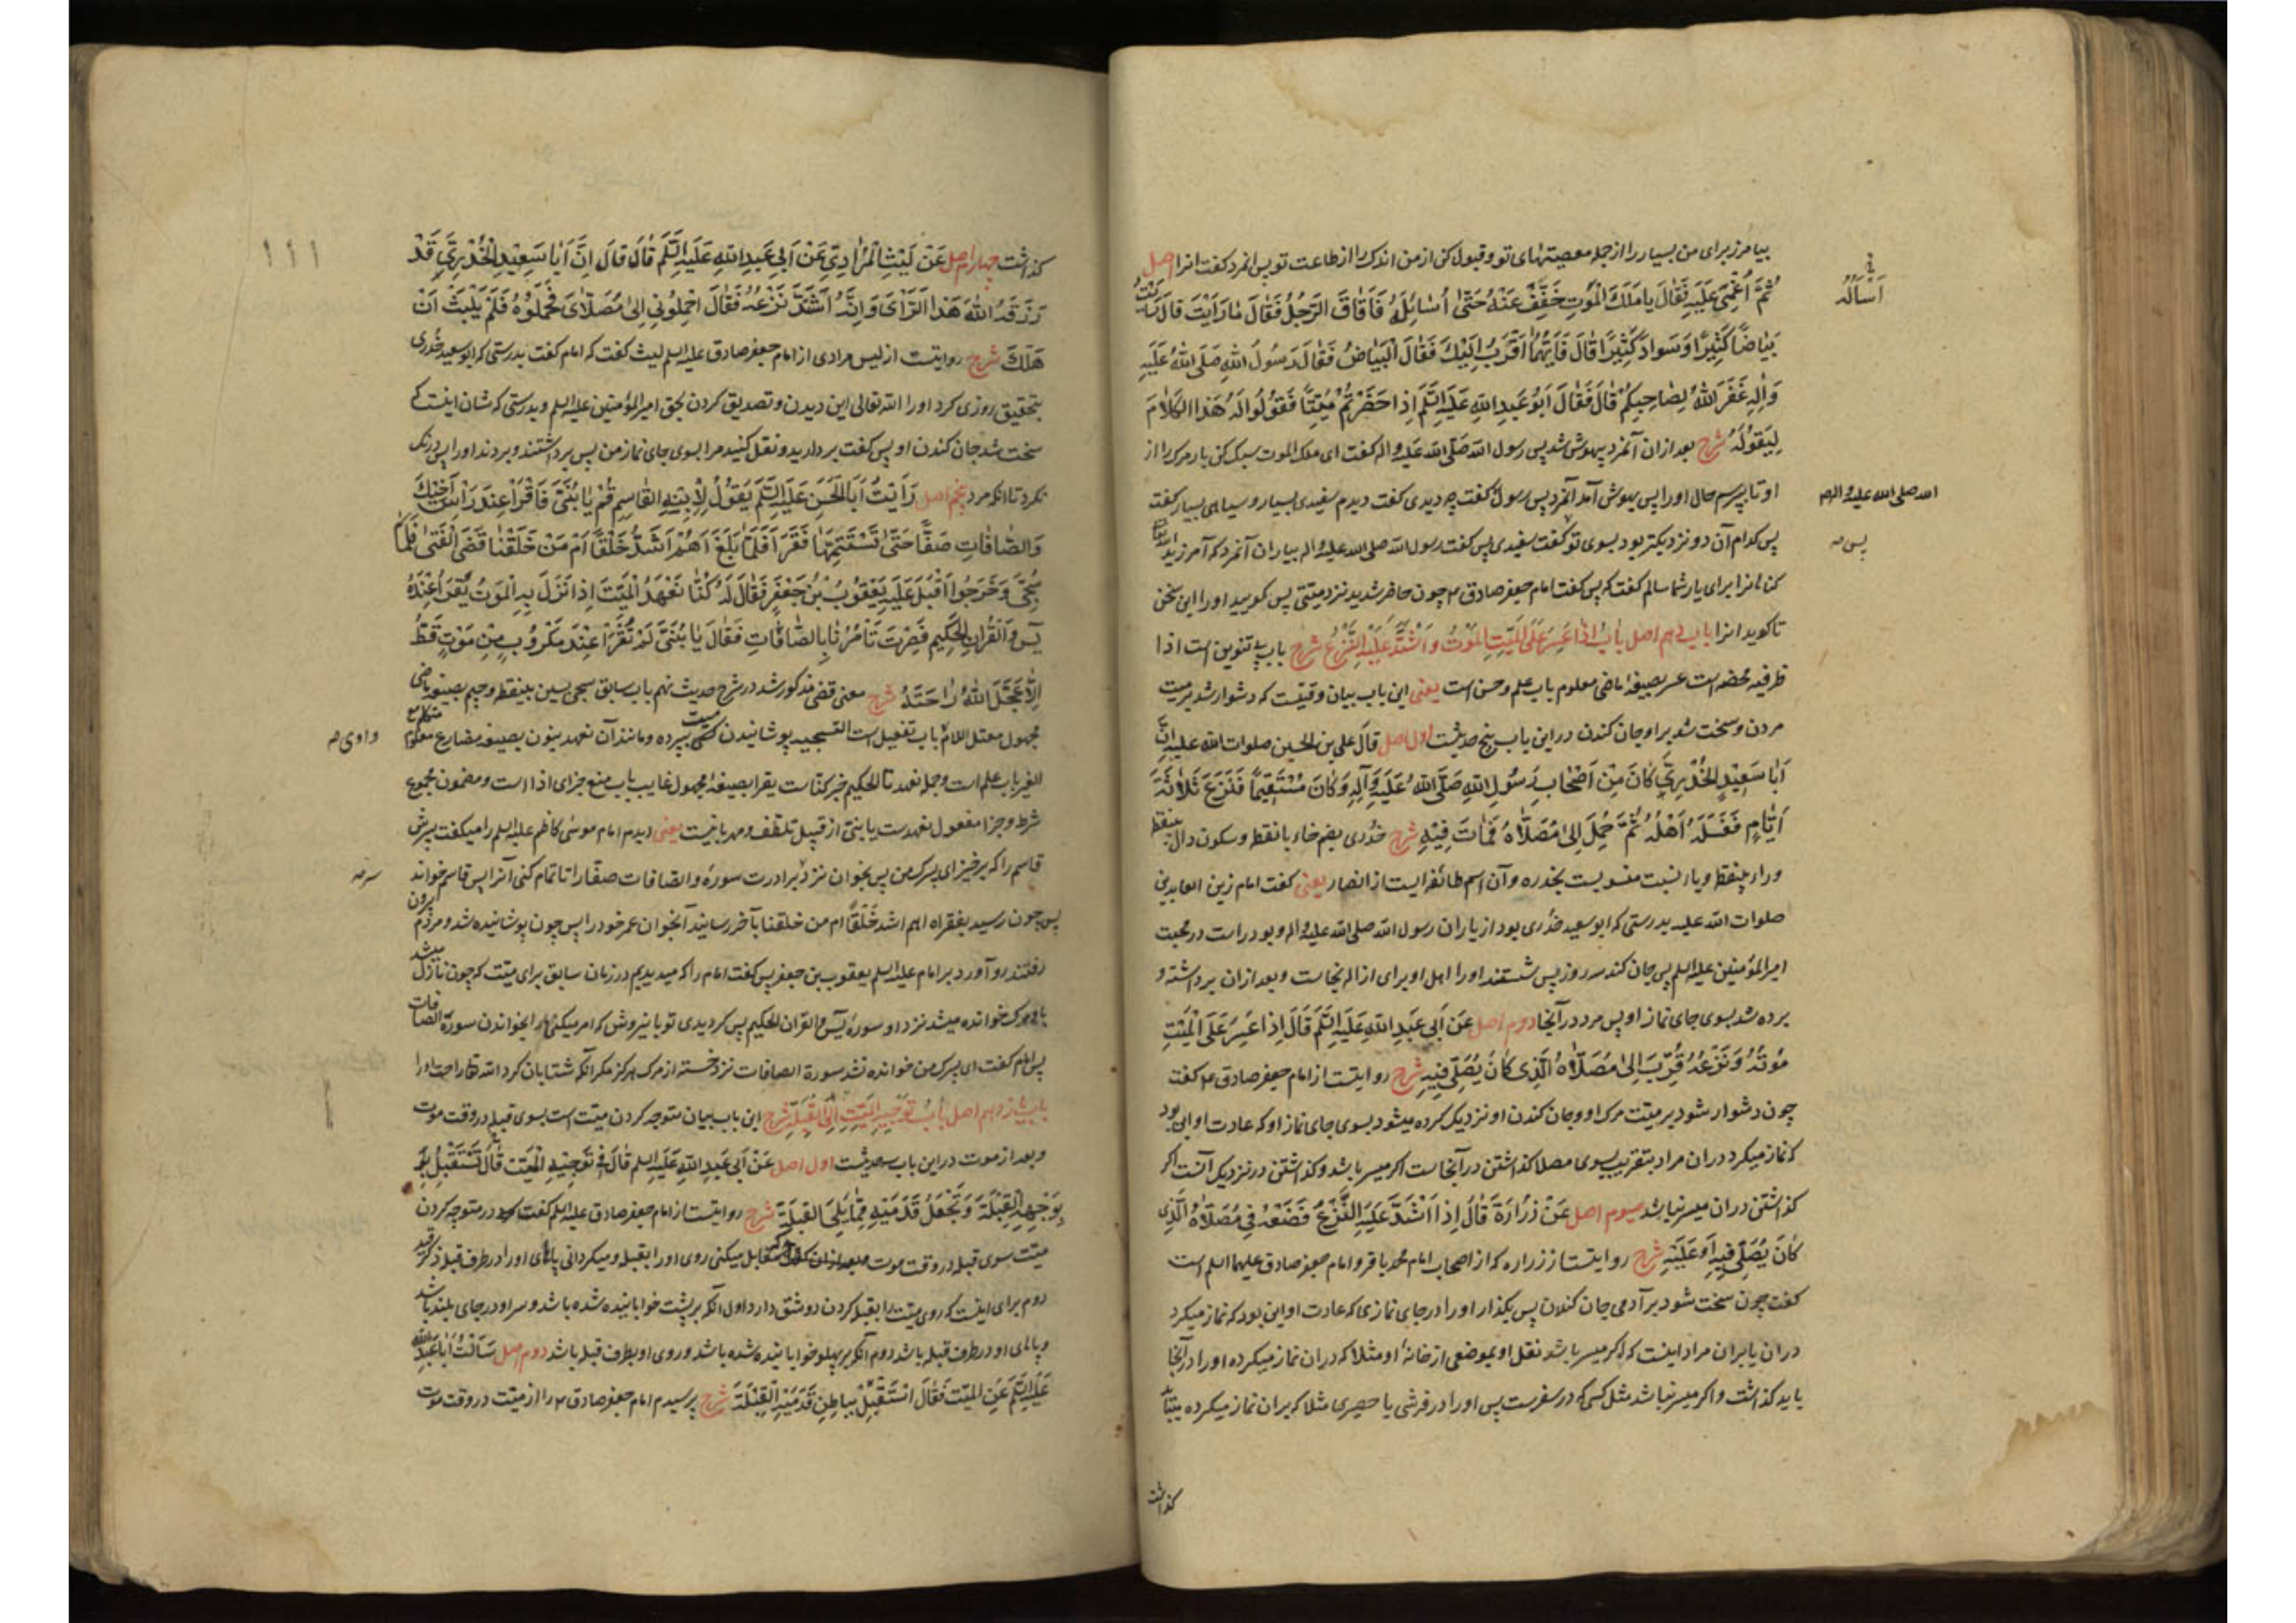 بیامرز برای من بسیار را از جمله معصیتهای تو و قبول کن از من اندک را از طاعت تو پس انمرد کفت انرا اصل
ثُمَّ أُغْمِيَ عَلَيْهِ فَقَالَ يا مَلَكَ الْمَوْتِ خَفِّفْ عَنْهُ حَتّىٰ أُسَائِلَهُ فَأَفَاقَ الرَّجُلُ فَقَالَ مَا رَأَيْتَ قَالَ رَأَيْتُ
أَسْأَلَهُ
بَيَاضًا كَثِيرًا وَسَوَادًا كَثِيرًا قَالَ فَأَيُّهُمَا أَقْرَبُ إِلَيْكَ فَقَالَ الْبَيَاضُ فَقَالَ رَسُولُ اللهِ صَلَّى اللهُ عَلَيْهِ
وَآلِهِ غَفَرَ اللهُ لِصَاحِبِكُمْ قَالَ فَقَالَ أَبُو عَبْدِ اللهِ عَلَيْهِ السَّلَمُ إِذَا حَضَرْتُمْ مَيِّتًا فَقُولُوا لَهُ هَذَا الْكَلَامَ
لِيَقُولَهُ شرح بعد ازان آنمرد بیهوش شد پس رسول الله صَلَّى الله علیه و اله کفت ای ملک الموت سبک کن بار مرک را از
او تا بپرسم حال او را پس بهوش آمد آنمرد پس رسول کفت چه دیدی کفت دیدم سفیدی بسیار و سیاهی بسیار کفت
الله صلى الله علیه و اله
پس کدام آن دو نزدیکتر بود بسوی تو کفت سفیدی پس کفت رسول الله صلى الله علیه و اله بیاران آنمرد که آمرزید
پس
کناهانرا برای یار شما سالم کفت که پس کفت امام جعفر صادق ع چون حاضر شدید نزد میتی پس کویید او را این سخن
تا کوید انرا باب دهم اصل بَابُ إِذَا عَسُرَ عَلَى الْمَيِّتِ الْمَوْتُ وَاشْتَدَّ عَلَيْهِ النَّزْعُ شرح باب بتنوین است اذا
ظرفیه محضه است عسر بصیغه ماضی معلوم باب علم و حسن است یعنی این باب بیان وقتیست که دشوار شد بر میت
مردن و سخت شد بر او جان کندن در این باب پنج حدیثست اول اصل قال علی بن الحسین صلوات الله علیه إِنَّ
أَبَا سَعِيدٍ الْخُدْرِيَّ كَانَ مِنْ أَصْحَابِ رَسُولِ اللهِ صَلَّى اللهُ عَلَيْهِ وَآلِهِ وَكَانَ مُسْتَقِيمًا فَنَزَعَ ثَلَاثَةَ
أَيَّامٍ فَغَسَّلَهُ أَهْلُهُ ثُمَّ حُمِلَ إِلَى مُصَلَّاهُ فَمَاتَ فِيهِ شرح خُدری بضم خاء با نقطه و سکون دال بینقطه
و راء بینقطه و یاء نسبت منسوبست بخدره و آن اسم طائفه ایست از انصار یعنی کفت امام زین العابدین
صلوات الله علیه بدرستی که ابو سعید خدری بود از یاران رسول الله صلی الله علیه و اله و بود راست در محبت
امیرالمؤمنین علیه السلم پس جان کند سه روز پس شستند او را اهل او برای ازاله نجاست و بعد ازان برداشته و
برده شد بسوی جای نماز او پس مرد در آنجا دوم اصل عَنْ أَبِي عَبْدِ اللهِ عَلَيْهِ السَّلَمُ قَالَ إِذَا عَسُرَ عَلَى الْمَيِّتِ
مَوْتُهُ وَنَزْعُهُ قُرِّبَ إِلَى مُصَلَّاهُ الَّذِي كَانَ يُصَلِّي فِيهِ شرح روایتست از امام جعفر صادق ع کفت
چون دشوار شود بر میت مرک او و جان کندن او نزدیک کرده میشود بسوی جای نماز او که عادت او این بود
که نماز میکرد در ان مراد بتقریب بسوی مصلا کذاشتن در آنجاست اکر میسر باشد و کذاشتن در نزدیک آنست اکر
کذاشتن در ان میسر نباشد سیوم اصل عَنْ زُرَارَةَ قَالَ إِذَا اشْتَدَّ عَلَيْهِ النَّزْعُ فَضَعْهُ فِي مُصَلَّاهُ الَّذِي
كَانَ يُصَلِّي فِيهِ أَوْ عَلَيْهِ شرح روایتست از زراره که از اصحاب امام محمد باقر و امام جعفر صادق علیهما السلم است
کفت چون سخت شود بر آدمی جان کندن پس بکذار او را در جای نمازی که عادت او این بود که نماز میکرد
دران یا بران مراد اینست که اکر میسر باشد نقل او بموضعی از خانه او مثلا که دران نماز میکرده او را در آنجا
باید کذاشت و اکر میسر نباشد مثل کسی که در سفرست پس او را در فرشی یا حصیری مثلا که بران نماز میکرده
کذاشت
١١١
کذاشت چهارم اصل عَنْ لَيْثٍ الْمُرَادِيِّ عَنْ أَبِي عَبْدِ اللهِ عَلَيْهِ السَّلَمُ قَالَ قَالَ إِنَّ أَبَا سَعِيدٍ الْخُدْرِيَّ قَدْ
رَزَقَهُ اللهُ هَذَا الرَّأْيَ وَإِنَّهُ اشْتَدَّ نَزْعُهُ فَقَالَ احْمِلُونِي إِلَى مُصَلَّايَ فَحَمَلُوهُ فَلَمْ يَلْبَثْ أَنْ
هَلَكَ شرح روایتست از لیس مرادی از امام جعفر صادق علیه السلم لیث کفت که امام کفت بدرستی که ابو سعید خُدری
بتحقیق روزی کرد او را الله تعالی این دیدن و تصدیق کردن بحق امیرالمؤمنین علیه السلم و بدرستی که شان اینست که
سخت شد جان کندن او پس کفت بردارید و نقل کنید مرا بسوی جای نماز من پس برداشتند و بردند او را پس درنک
نکرد تا انکه مرد پنجم اصل رَأَيْتُ أَبَا الْحَسَنِ عَلَيْهِ السَّلَمُ يَقُولُ لِابْنِهِ الْقَاسِمِ قُمْ يَا بُنَيَّ فَاقْرَأْ عِنْدَ رَأْسِ أَخِيكَ
وَالصَّافَّاتِ صَفًّا حَتَّى تَسْتَتِمَّهَا فَقَرَأَ فَلَمَّا بَلَغَ أَهُمْ أَشَدُّ خَلْقًا أَمْ مَنْ خَلَقْنَا قَضَى الْفَتَى فَلَمَّا
سُجِّيَ وَخَرَجُوا أَقْبَلَ عَلَيْهِ يَعْقُوبُ بْنُ جَعْفَرٍ فَقَالَ لَهُ كُنَّا نَعْهَدُ الْمَيِّتَ إِذَا نَزَلَ بِهِ الْمَوْتُ يُقْرَأُ عِنْدَهُ
يس وَالْقُرْآنِ الْحَكِيمِ فَصِرْتَ تَأْمُرُنَا بِالصَّافَّاتِ فَقَالَ يَا بُنَيَّ لَمْ تُقْرَأْ عِنْدَ مَكْرُوبٍ مِنْ مَوْتٍ قَطُّ
إِلَّا عَجَّلَ اللهُ رَاحَتَهُ شرح معنی قضی مذکور شد در شرح حدیث نهم باب سابق سجی بسین بینقطه و جیم بصیغه ماضی
مجهول معتل اللام باب تفعیل است التسجیه پوشانیدن میت بپرده و مانند آن نعهد بنون بصیغه مضارع معلوم متکلم مع
واوی
الغیر باب علم است و جمله نعهد تا الحکیم خبر کنّاست یقرأ بصیغه مجهول غایب باب منع جزای اذا است و مضمون مجموع
شرط و جزا مفعول نعهدست یا بنیّ از قبیل تلطّف و مهربانیست یعنی دیدم امام موسی کاظم علیه السلم را میکفت پسرش
قاسم را که برخیز ای پسرک من پس بخوان نزد برادرت سوره و الصافات صفّا را تا تمام کنی آنرا پس قاسم خواند
سر
پس چون رسید بفقراه اهم اشد خَلْقًا ام من خلقنا بآخر رسانید آنجوان عمر خود را پس چون پوشانیده شد و مردم بیرون
رفتند رو آورد بر امام علیه السلم یعقوب بن جعفر پس کفت امام را که میدیدیم در زمان سابق برای میت که چون نازل میشد
باو مرک خوانده میشد نزد او سوره یس و القرآن الحکیم پس کردیدی تو باینروش که امر میکنی ما را بخواندن سورة الصافات
پس امام کفت ای پسرک من خوانده نشد سورة الصافات نزد خسته از مرک هرکز مکر آنکه شتابان کرد الله تعالی راحت او را
باب یازدهم اصل بَابُ تَوْجِيهِ الْمَيِّتِ إِلَى الْقِبْلَةِ شرح این باب بیان متوجه کردن میت است بسوی قبله در وقت موت
و بعد از موت در این باب سه حدیثست اول اصل عَنْ أَبِي عَبْدِ اللهِ عَلَيْهِ السلم قَالَ فِي تَوْجِيهِ الْمَيِّتِ قَالَ تَسْتَقْبِلُ
بِوَجْهِهِ الْقِبْلَةَ وَتَجْعَلُ قَدَمَيْهِ مِمَّا يَلِي الْقِبْلَةَ شرح روایتست از امام جعفر صادق علیه السلم کفت در متوجه کردن
میت سوی قبله در وقت موت مقابل میکنی روی او را بقبله و میکردانی پاهای او را در طرف قبله ذکر قید
دوم برای اینست که روی میت را بقبله کردن دو شق دارد اول آنکه بر پشت خوابانیده شده باشد و سر او در جای بلند باشد
و پاهای او در طرف قبله باشد دوم آنکه بر پهلو خوابانیده شده باشد و روی او بطرف قبله باشد دوم اصل سَأَلْتُ أَبَا عَبْدِ اللهِ
عَلَيْهِ السَّلَمُ عَنِ الْمَيِّتِ فَقَالَ اسْتَقْبِلْ بِبَاطِنِ قَدَمَيْهِ الْقِبْلَةَ شرح پرسیدم امام جعفر صادق ع را از میت در وقت موت